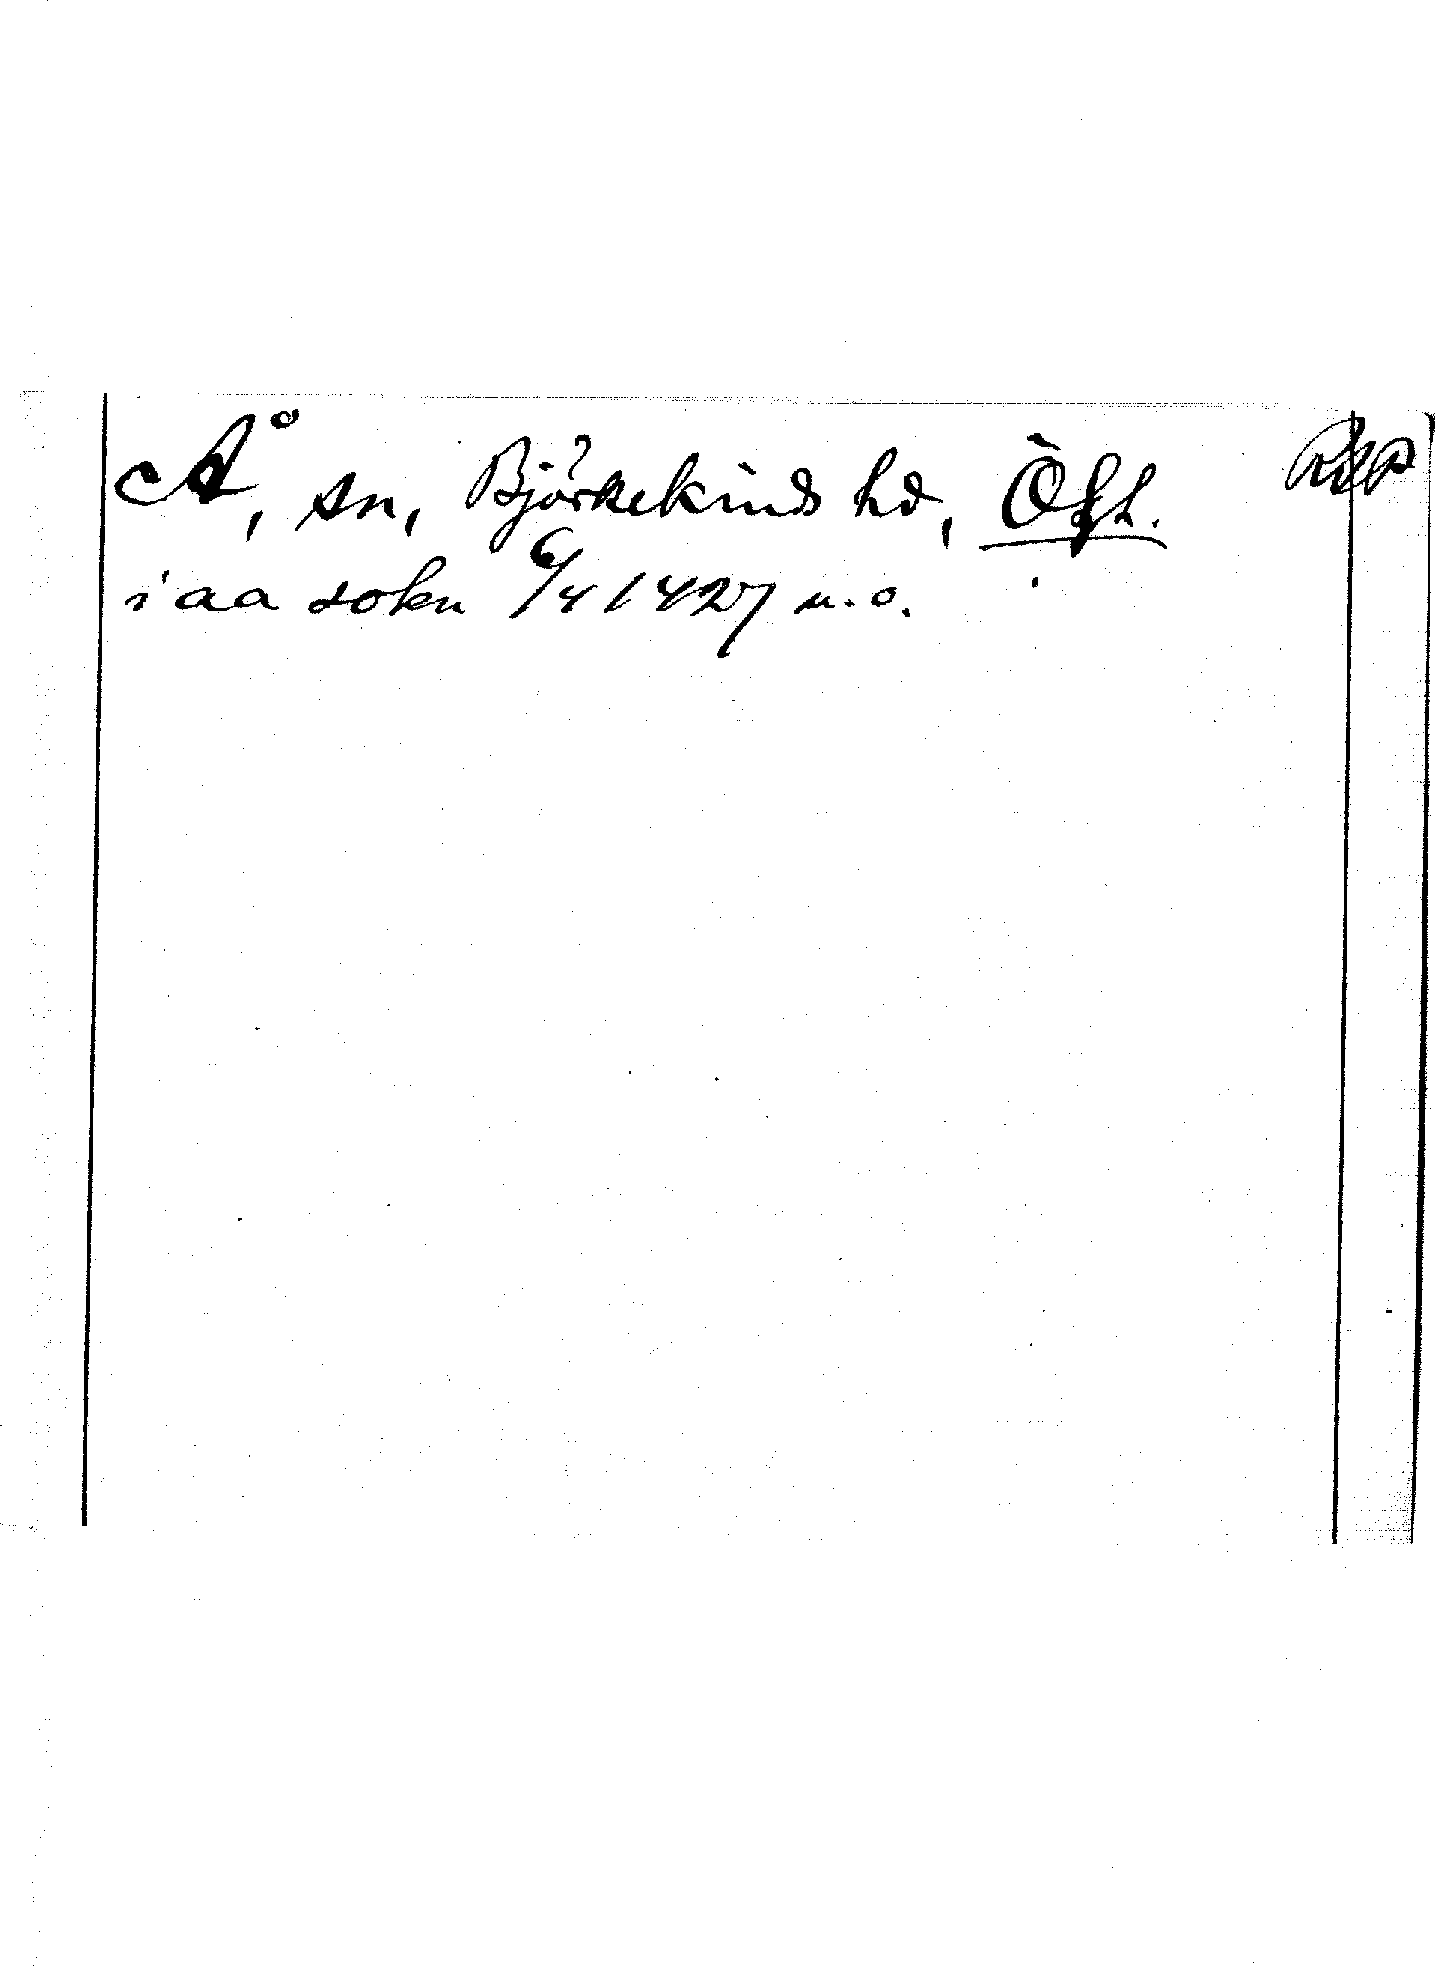 Å, sn, Björkekinds hd, Ögl. RAP
i aa sokn 6/4 1427 u.o.